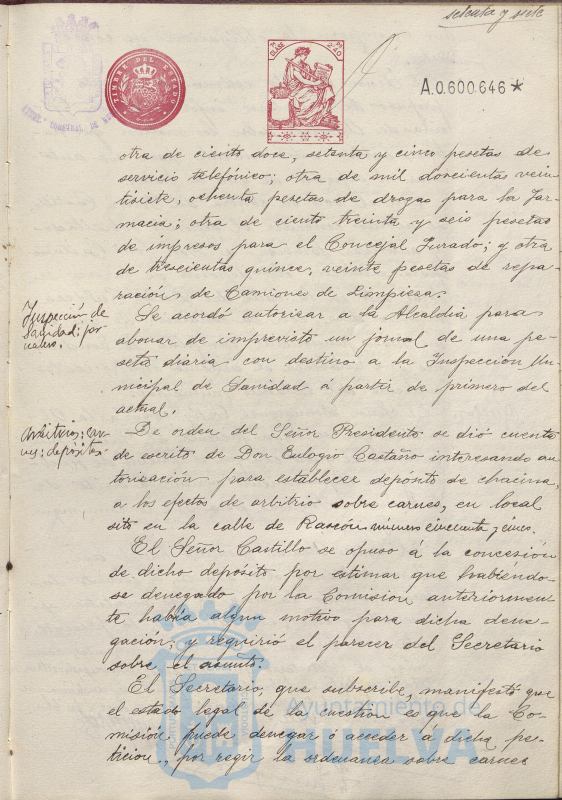 setenta y siete
TIMBRE DEL ESTADO
CLASE
A.0.600.646*
otra de ciento doce, setenta y cinco pesetas de
servicio telefónico; otra de mil doscientas vein
tisiete, ochenta pesetas de drogas para la Far-
macia; otra de ciento treinta y seis pesetas
de impresos para el Concejal Jurado; y otra
de trescientas quince, veinte pesetas de repa-
raciones de Camiones de Limpieza.
Inspección de
Sanidad: jor
nales.
Se acordó autorizar a la Alcaldía para
abonar de imprevisto un jornal de una pe-
seta diaria con destino a la Inspección Mu-
nicipal de Sanidad á partir de primero del
actual.
Arbitrios: car-
nes: depósitos
De orden del Señor Presidente se dió cuenta
de escrito de Don Eulogio Castaño interesando au
torisación para establecer deposito de chacina,
a los efectos de arbitrio sobre carnes, en local
sito en la calle de Rascón número cincuenta y cinco.
El Señor Castillo se opuso á la concesión
de dicho depósito por estimar que habiéndo-
se denegado por la Comision anteriormen
te habia algun motivo para dicha dene-
gación, y requirió el parecer del Secretario
sobre el asunto.
El Secretario, que subscribe, manifestó que
el estado legal de la cuestion es que la Co-
misión puede denegar ó acceder a dicha pe-
ticion, por regir la ordenanza sobre carnes
Ayuntamiento de
HUELVA